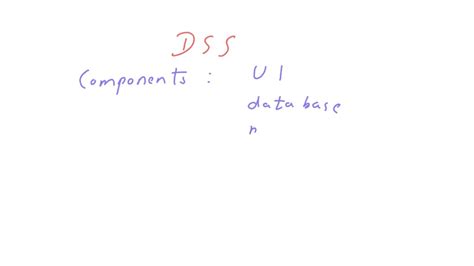 DSS
Components: UI
database